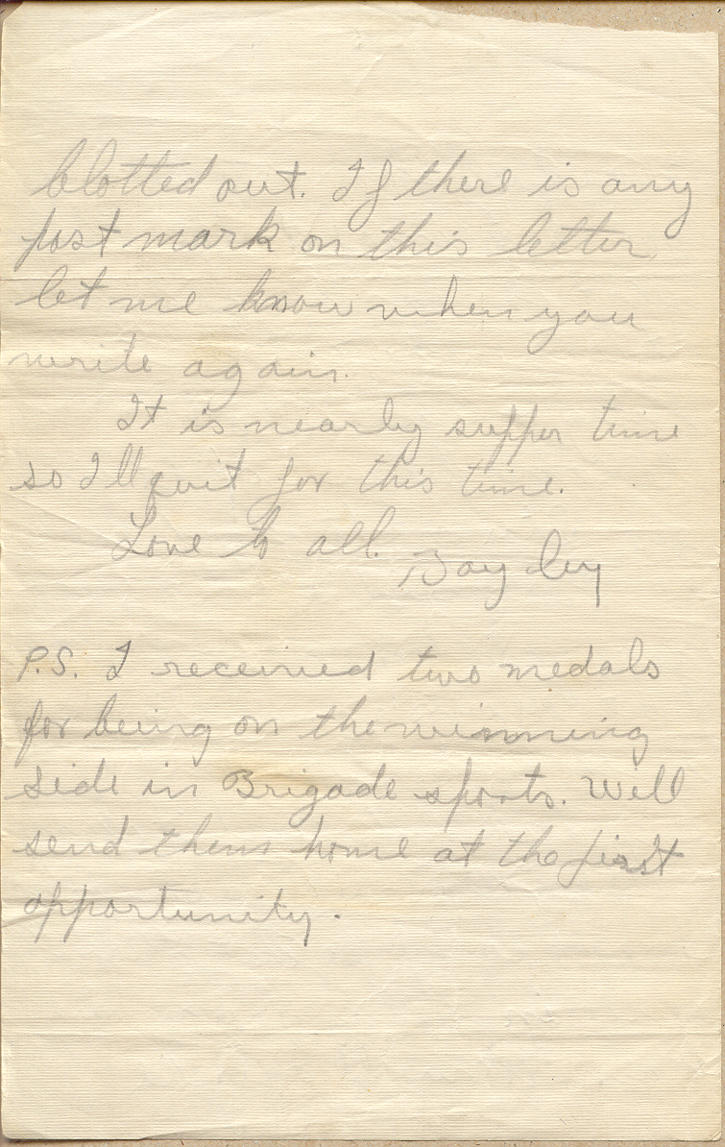 blotted out. If there is any
post mark on this letter
let me know when you
write again.
It is nearly supper time
so I'll quit for this time.
Love to all.
P.S. I received two medals
for being on the winning
side in Brigade sports. Will
send them home at the first
opportunity.